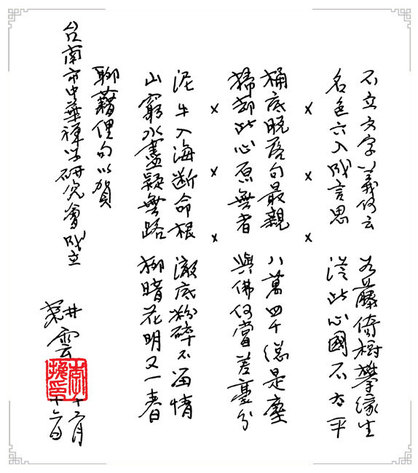 不立文字義何云 若藤倚樹攀緣生
名色六入成言思 從此心國不太平
× × ×
桶底脫落句最親 八萬四千總是塵
掃却此心原無者 與佛何嘗差毫分
× × ×
泥牛入海斷命根 澈底粉碎不留情
山窮水盡疑無路 柳暗花明又一春
聊藉俚句以賀
台南市中華禪學研究會成立
耕雲